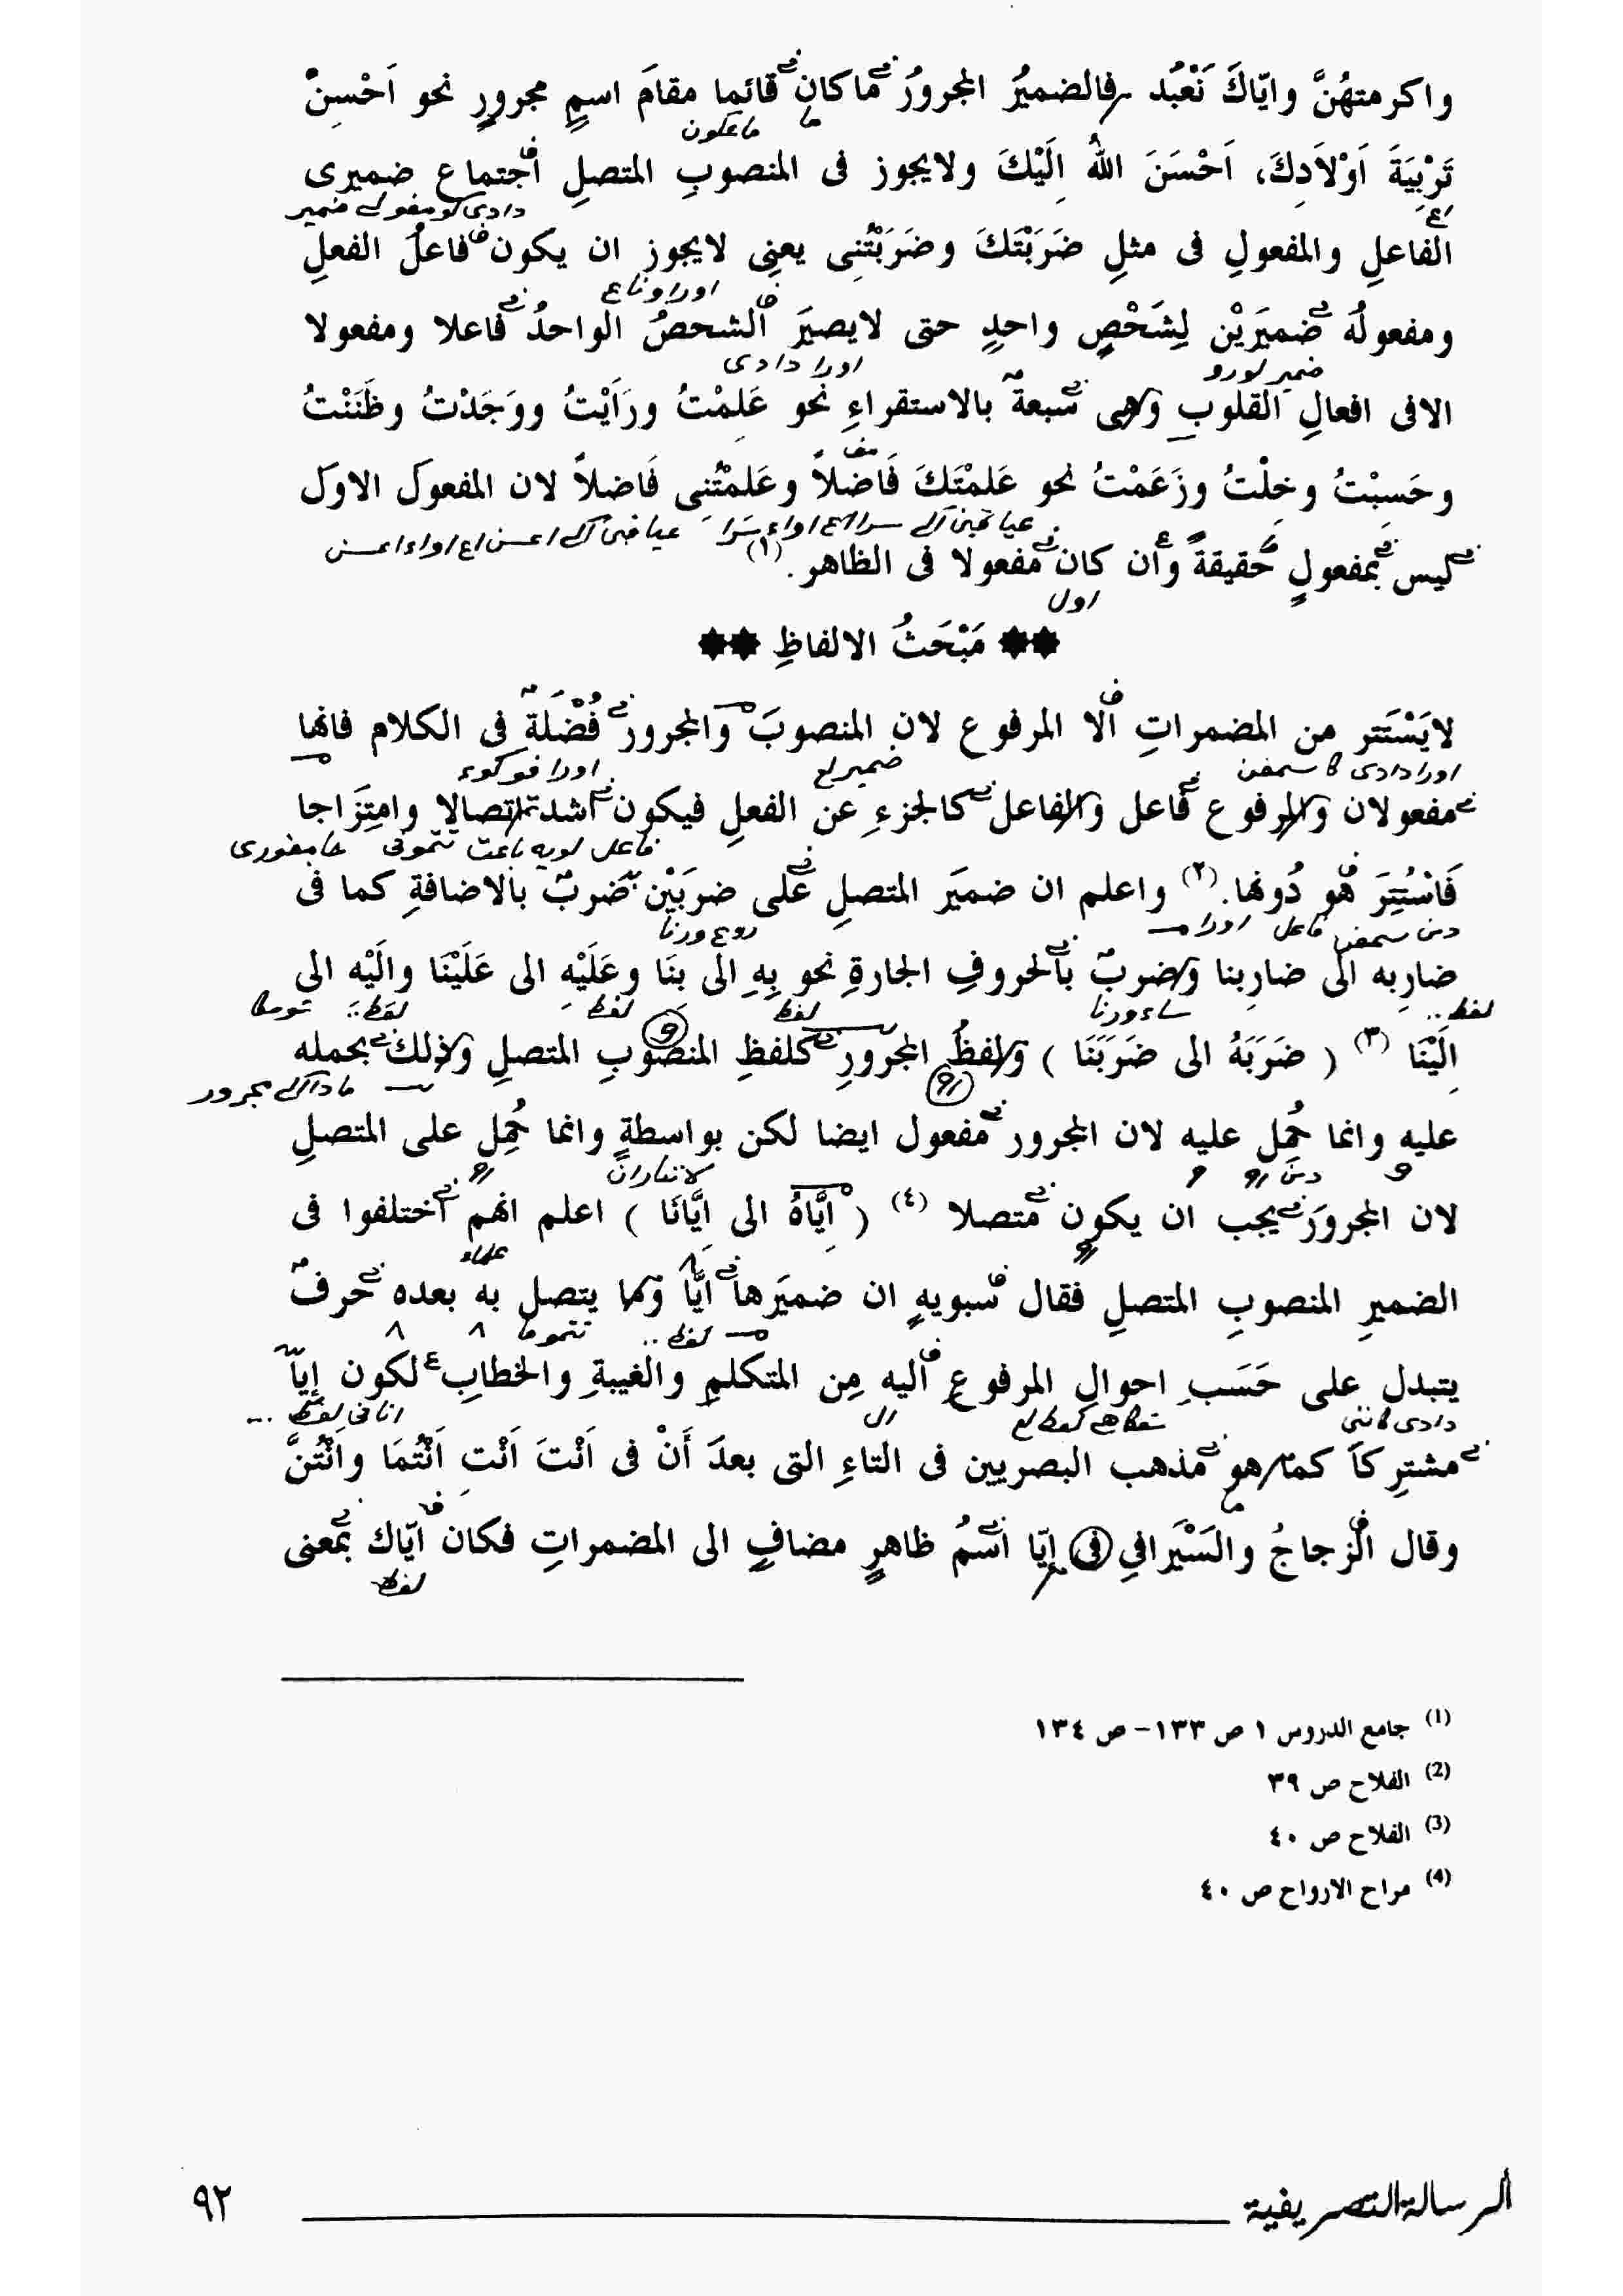 واكرمتهُنَّ وايّاكَ نَعْبُد فالضميرُ المجرورُ ماكان قائما مقامَ اسمٍ مجرورٍ نحو اَحْسِنْ
ما ماعكون
تَرْبِيَةَ اَوْلاَدِكَ، اَحْسَنَ اللهُ اِلَيْكَ ولايجوز فى المنصوبِ المتصلِ اجتماع ضميرى
الفاعلِ والمفعولِ فى مثلِ ضَرَبْتَكَ وضَرَبْتُنِى يعنِى لايجوز ان يكون فاعلُ الفعلِ
ومفعولُه ضميرَيْن لِشَخْصٍ واحدٍ حتى لايصيرَ الشخصُ الواحدُ فاعلا ومفعولا
ضمير لورو اورا دادى
الافى افعالِ القلوب وهى سبعةٌ بالاستقراءِ نحو عَلِمْتُ ورَاَيْتُ ووَجَدْتُ وظَنَنْتُ
وحَسِبْتُ وخِلْتُ وزَعَمْتُ نحو عَلِمْتَكَ فَاضلاً وعَلِمْتُنِى فَاضلاً لان المفعول الاول
ليس بمفعولٍ حقيقةً وان كان مفعولا فى الظاهر. (١)
اول
** مَبْحَثُ الالفاظِ **
لايَسْتَتر من المضمراتِ الا المرفوع لان المنصوبَ والمجرور فُضْلَةٌ فى الكلام فانها
مفعولان والمرفوع فاعل والفاعل كالجزءِ عن الفعلِ فيكون اشد اتصالا وامتِزَاجا
فَاسْتُتِرَ هُو دُونها. (٢) واعلم ان ضميَر المتصلِ على ضربَيْن ضربٌ بالاضافةِ كما فى
ضارِبه الى ضارِبنا وضربٌ بالحروفِ الجارةِ نحو بِهِ الى بنَا وعَلَيْهِ الى عَلَيْنَا والَيْه الى
لفظ لفظ لفظ
اِلَيْنَا (٣) ( ضَرَبَهُ الى ضَرَبَنَا ) ولفظُ المجرورِ كلفظِ المنصوبِ المتصلِ وذلك بحمله
عليه وانما حُمِل عليه لان المجرور مفعول ايضا لكن بواسطةٍ وانما حُمِل على المتصلِ
لان المجرورَ يجب ان يكون متصلا (٤) ( اِيَّاهُ الى اِيَّانَا ) اعلم انهم اختلفوا فى
علماء
الضميرِ المنصوبِ المتصلِ فقال سبويهِ ان ضميَرها ايَّا وما يتصل به بعده حرفٌ
يتبدل على حَسَبِ احوالِ المرفوعِ اليه مِن المتكلمِ والغيبةِ والخطابِ لكون اِيّا
مشتركاً كما هو مذهب البصريين فى التاءِ التى بعدَ أَنْ فى اَنْتَ اَنْتِ اَنْتُمَا واَنْتُنَّ
وقال الزجاجُ والسَّيْرَافِي فى اِيّا اسمُ ظاهرٍ مضافٍ الى المضمراتِ فكان ايّاك بمعنى
لفظ
(1) جامع الدروس ١ ص ١٣٣- ص ١٣٤
(2) الفلاح ص ٣٩
(3) الفلاح ص ٤٠
(4) مراح الارواح ص ٤٠
الرسالة التصريفية ٩٢